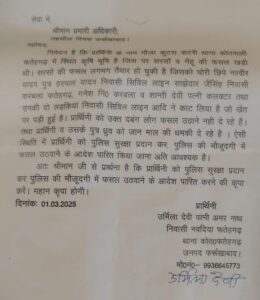 सेवा में,
श्रीमान प्रभारी अधिकारी,
महोदय,
निवेदन है कि प्रार्थिनी के नाम मौजा खुटरा थाना कोतवाली
फतेहगढ़ में स्थित कृषि भूमि है जिस पर सरसों व गेहूँ की फसल खड़ी
थी। सरसों की फसल लगभग तैयार हो चुकी है जिसको चोरी छिपे
पुत्र हरलाल यादव निवासी सिविल लाइन साझेदार जैसिंह निवासी
करबला फतेहगढ़, गनेश नि0 करबला व शान्ती देवी पत्नी कलक्टर तथा
उनकी दो लड़कियां निवासी सिविल लाइन आदि ने काट लिया है जो खेत
पर पड़ी हुई है। प्रार्थिनी को उक्त दबंग लोग फसल उठाने नही दे रहे हैं।
तथा प्रार्थिनी व उसके पुत्र ध्रुव को जान माल की धमकी दे रहे है। ऐसी
स्थिति में प्रार्थिनी को पुलिस सुरक्षा प्रदान कर, पुलिस की मौजूदगी में
फसल उठवाने के आदेश पारित किया जाना अति आवश्यक है।
अतः श्रीमान जी से प्रार्थना है कि प्रार्थिनी को पुलिस सुरक्षा प्रदान
कर पुलिस की मौजूदगी में फसल उठवाने के आदेश पारित करने की कृपा
करें। महान कृपा होगी।
दिनांक: 01.03.2025
प्रार्थिनी
उर्मिला देवी पत्नी अमर नाथ
निवासी नवदिया फतेहगढ़
थाना को0 फतेहगढ़
जनपद फर्रूखाबाद।
मो0नं0- 9936645773
उर्मिला देवी